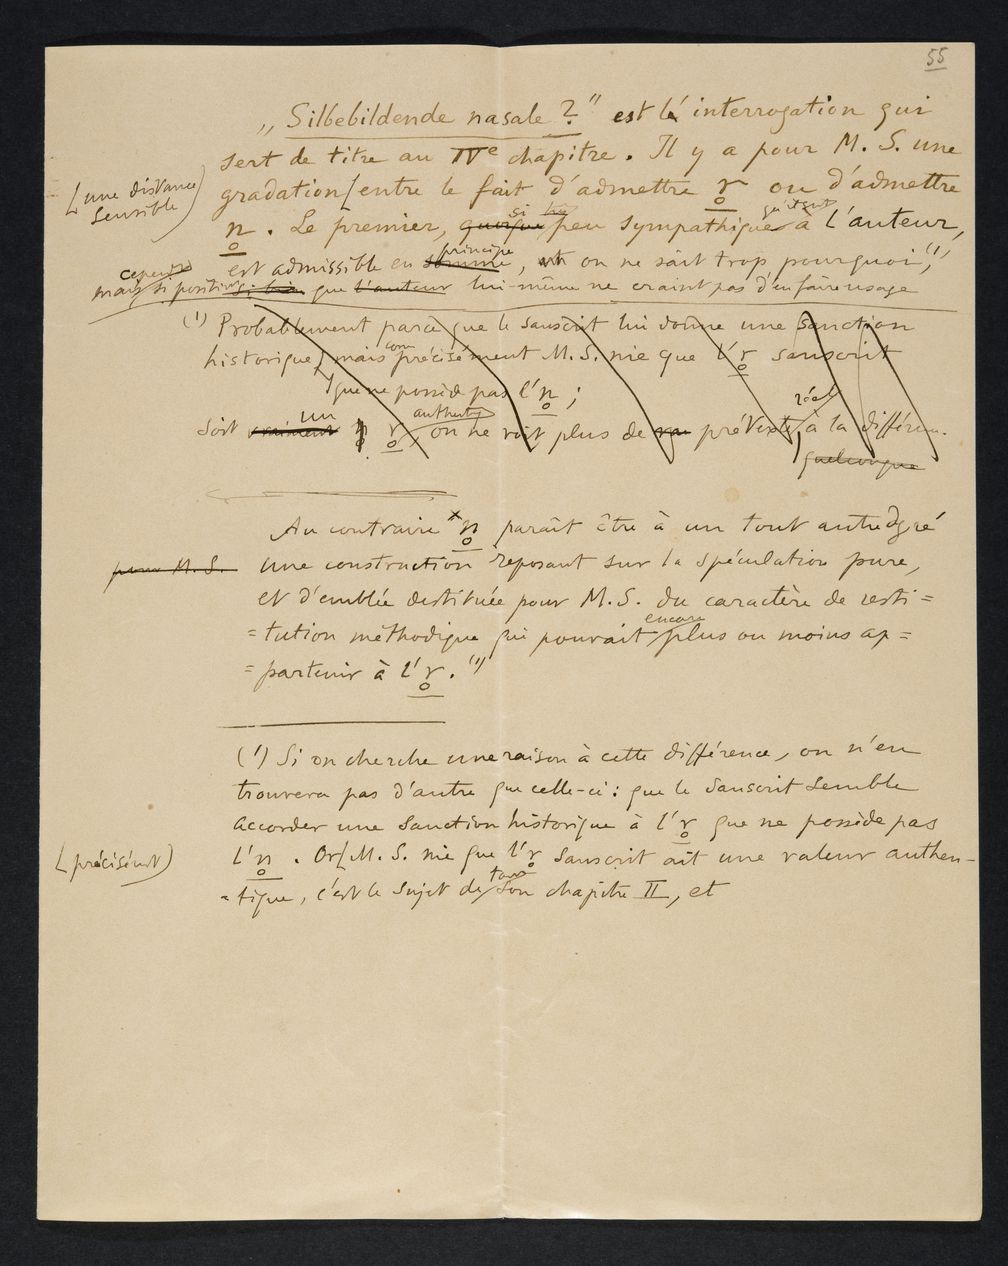 55
„Silbebildende nasale ?" est l'interrogation qui
sert de titre au IVe chapitre. Il y a pour M. S. une
[une distance sensible)
gradation [entre le fait d'admettre r̥ ou d'admettre
n̥. Le premier, quoique si peu sympathique qu'il soit à l'auteur,
est admissible en somme principe, et on ne sait trop pourquoi,(1)
mais si positivement si bien que l'auteur lui-même ne craint pas d'en faire usage
(1) Probablement parce que le sanscrit lui donne une sanction
historique, mais comme précisément M. S. nie que l'r̥ sanscrit
que ne possède pas l'n̥ ;
soit vraiment un r̥, on ne voit plus de prétexte réel à la différen.
quelconque
Au contraire *n̥ paraît être à un tout autre degré
pour M. S.
une construction reposant sur la spéculation pure,
et d'emblée destituée pour M. S. du caractère de resti=
=tution méthodique qui pouvait encore plus ou moins ap=
=partenir à l'r̥.(1)
(1) Si on cherche une raison à cette différence, on n'en
trouvera pas d'autre que celle-ci : que le Sanscrit semble
accorder une sanction historique à l'r̥ que ne possède pas
[précisément)
l'n̥. Or [M. S. nie que l'r̥ Sanscrit ait une valeur authen-
=tique, c'est le sujet de tout son chapitre II, et